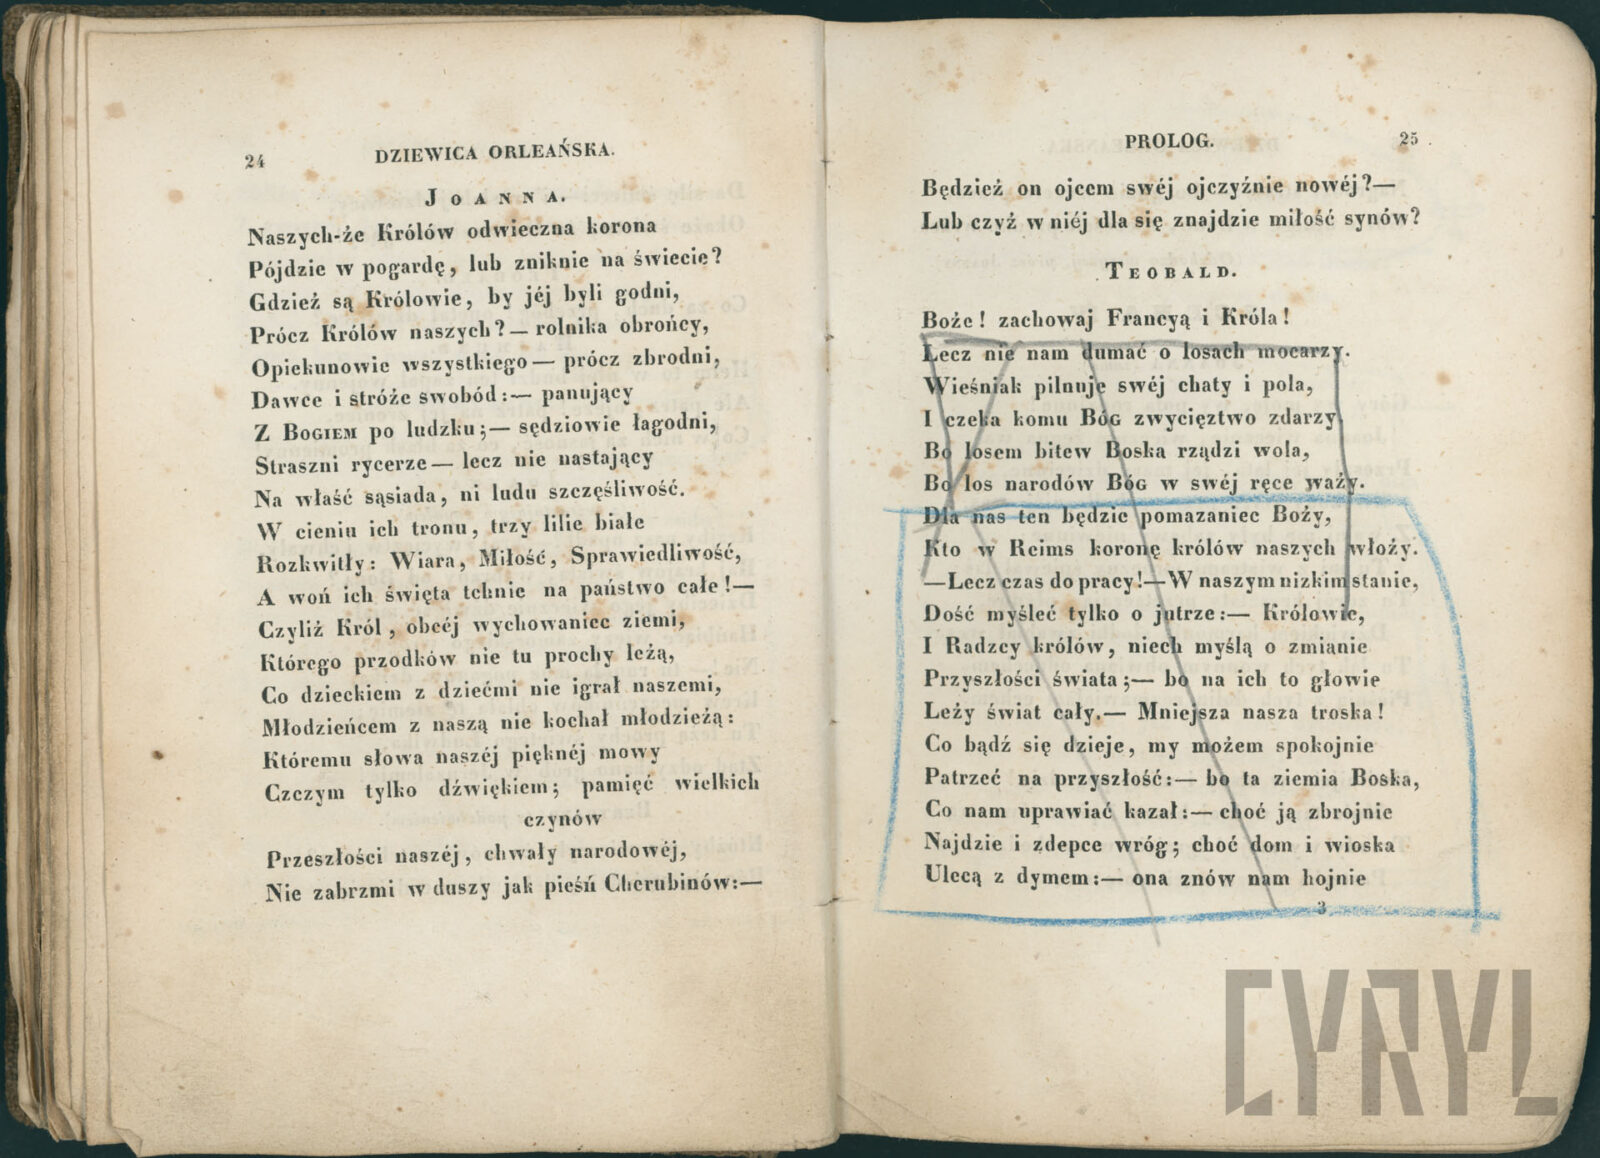 24
DZIEWICA ORLEAŃSKA.
JOANNA.
Naszych-że Królów odwieczna korona
Pójdzie w pogardę, lub zniknie na świecie?
Gdzież są Królowie, by jéj byli godni,
Prócz Królów naszych? — rolnika obrońcy,
Opiekunowie wszystkiego — prócz zbrodni,
Dawce i stróże swobód: — panujący
Z BOGIEM po ludzku; — sędziowie łagodni,
Straszni rycerze — lecz nie nastający
Na właść sąsiada, ni ludu szczęśliwość.
W cieniu ich tronu, trzy lilie białe
Rozkwitły: Wiara, Miłość, Sprawiedliwość,
A woń ich święta tchnie na państwo całe! —
Czyliż Król, obcéj wychowaniec ziemi,
Którego przodków nie tu prochy leżą,
Co dzieckiem z dziećmi nie igrał naszemi,
Młodzieńcem z naszą nie kochał młodzieżą:
Któremu słowa naszéj pięknéj mowy
Czczym tylko dźwiękiem; pamięć wielkich
czynów
Przeszłości naszéj, chwały narodowéj,
Nie zabrzmi w duszy jak pieśń Cherubinów: —
PROLOG.
25
Będzież on ojcem swéj ojczyźnie nowéj? —
Lub czyż w niéj dla się znajdzie miłość synów?
TEOBALD.
Boże! zachowaj Francyą i Króla!
Lecz nie nam dumać o losach mocarzy.
Wieśniak pilnuje swéj chaty i pola,
I czeka komu BÓG zwycięztwo zdarzy,
Bo losem bitew Boska rządzi wola,
Bo los narodów BÓG w swéj ręce waży.
Dla nas ten będzie pomazaniec Boży,
Kto w Reims koronę królów naszych włoży.
— Lecz czas do pracy! — W naszym nizkim stanie,
Dość myśleć tylko o jutrze: — Królowie,
I Radzcy królów, niech myślą o zmianie
Przyszłości świata; — bo na ich to głowie
Leży świat cały. — Mniejsza nasza troska!
Co bądź się dzieje, my możem spokojnie
Patrzeć na przyszłość: — bo ta ziemia Boska,
Co nam uprawiać kazał: — choć ją zbrojnie
Najdzie i zdepce wróg; choć dom i wioska
Ulecą z dymem: — ona znów nam hojnie
3
CYRYL